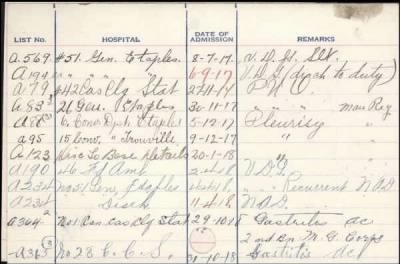 LIST NO. HOSPITAL DATE OF ADMISSION REMARKS
A.569 #51 Gen. Etaples. 8-7-17. V.D.G. Slt.
A194 " " " 6-9-17 V.D.G (disch to duty)
A79 #42 Cas Clg Stat 27-11-17 P.U.O.
A83 Gen. Etaples 30-11-17 " " "
A88 6. Conv Dept Etaples 5-12-17 Pleurisy
A95 15 Conv. " Trouville 9-12-17 "
A123 Disc To Base Details 20-1-18 "
A190 Fd Amb V.D.G.
A234 No 51 Gen, Etaples " Recurrent N.O.D.
A234 Disch 11-4-18 N.O.D.
A364 No 1 Can. Cas Clg Stat 29-10-18 Gastritis ac
2nd Bn M.G. Corps
A365 No 28 C.C.S. 31-10-18 Gastritis